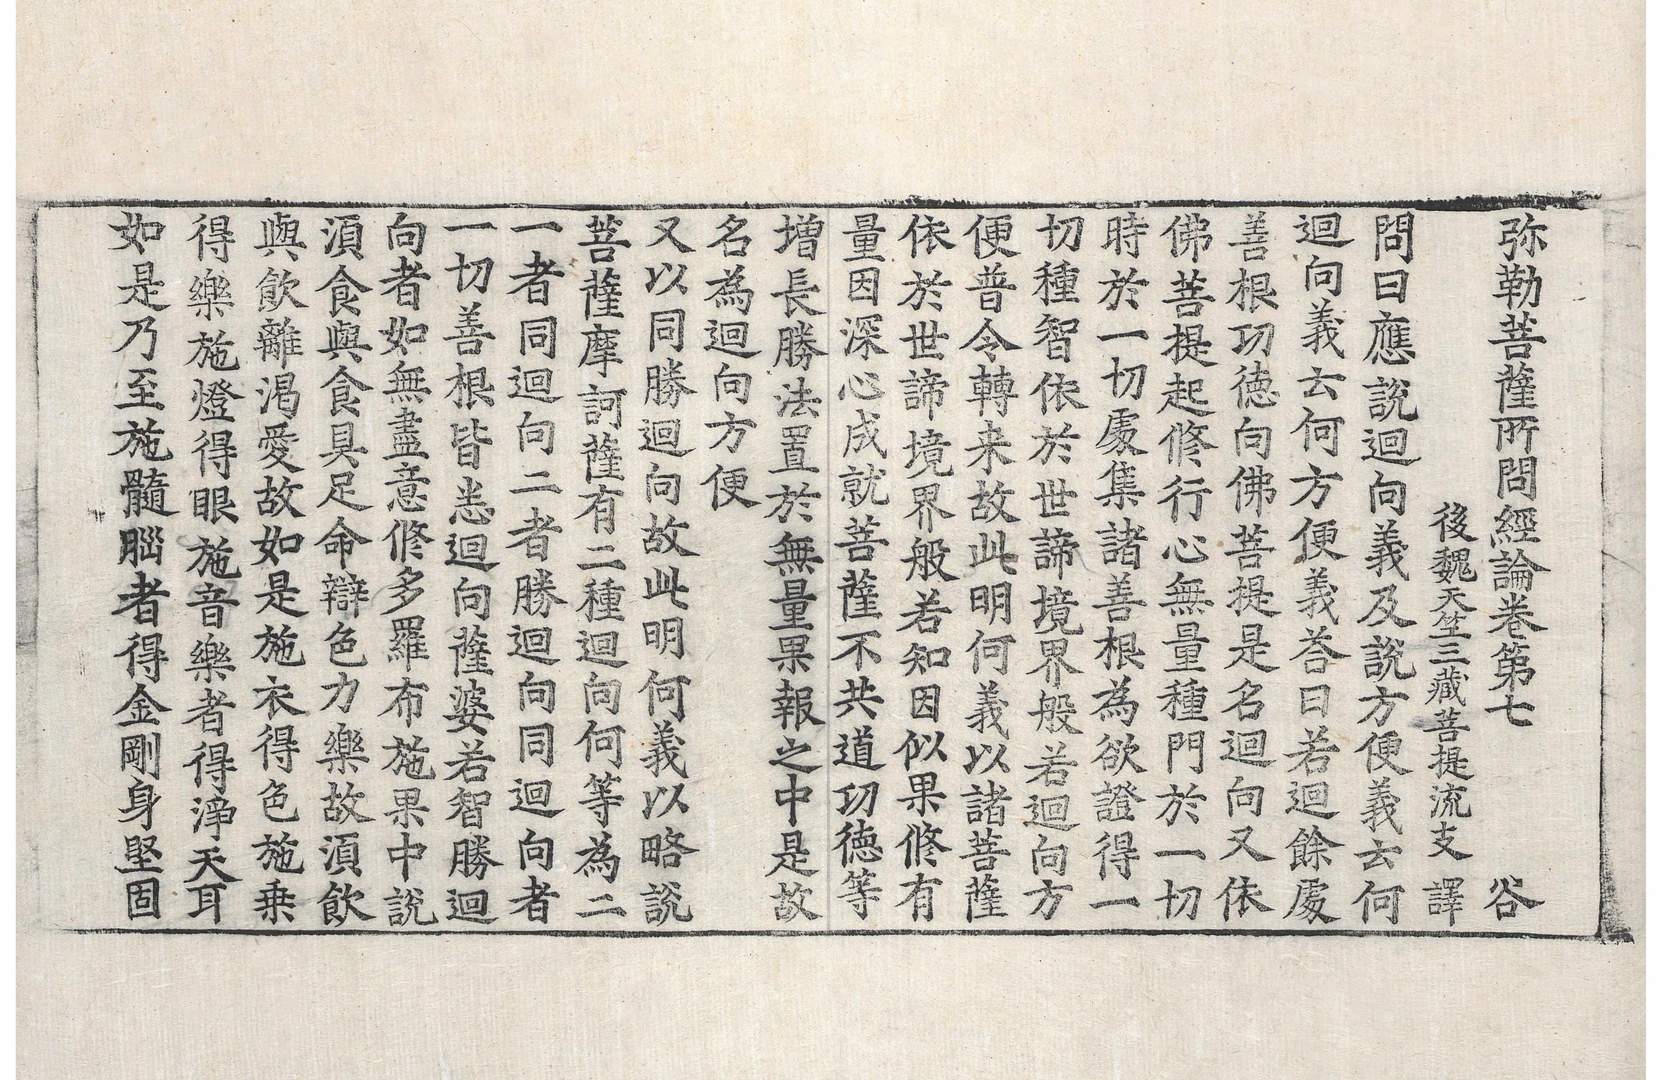 弥勒菩薩所問經論卷第七　谷
後魏天竺三藏菩提流支　譯
問曰應説迴向義及説方便義云何
迴向義云何方便義荅曰若迴餘處
善根功德向佛菩提是名迴向又依
佛菩提起修行心無量種門於一切
時於一切處集諸善根為欲證得一
切種智依於世諦境界般若迴向方
便普令轉来故此明何義以諸菩薩
依於世諦境界般若知因似果修有
量因深心成就菩薩不共道功德等
增長勝法置於無量果報之中是故
名為迴向方便
又以同勝迴向故此明何義以略説
菩薩摩訶薩有二種迴向何等為二
一者同迴向二者勝迴向同迴向者
一切善根皆悉迴向薩婆若智勝迴
向者如無盡意修多羅布施果中説
湏食與食具足命辯色力樂故湏飲
與飲離渴愛故如是施衣得色施乗
得樂施燈得眼施音樂者得淨天耳
如是乃至施髓腦者得金剛身堅固